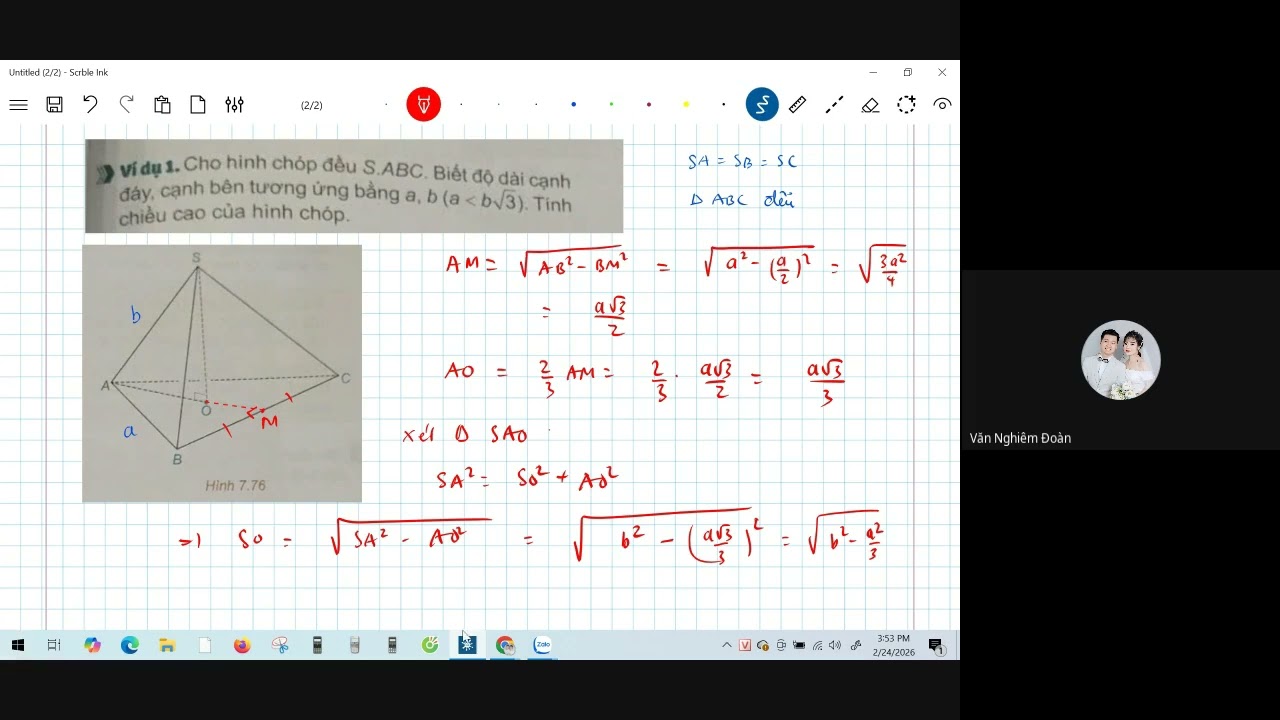 Untitled (2/2) - Scrble Ink
(2/2)
Ví dụ 1. Cho hình chóp đều S.ABC. Biết độ dài cạnh
đáy, cạnh bên tương ứng bằng a, b (a < b√3). Tính
chiều cao của hình chóp.
SA = SB = SC
Δ ABC đều
S
b
A
C
O
M
a
B
Hình 7.76
AM = √(AB² - BM²) = √(a² - (a/2)²) = √(3a²/4)
= a√3/2
AO = 2/3 AM = 2/3 . a√3/2 = a√3/3
Xét Δ SAO
SA² = SO² + AO²
=> SO = √(SA² - AO²) = √(b² - (a√3/3)²) = √(b² - a²/3)
Văn Nghiêm Đoàn
Zalo
V
3:53 PM
2/24/2026
1